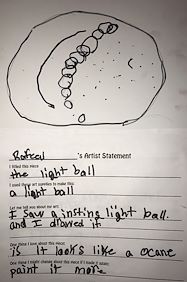 Rafeed 's Artist Statement
I titled this piece
the light ball
I used these art supplies to make this:
a light ball
Let me tell you about my art:
I saw a insting light ball.
and I drawed it
One thing I love about this piece:
is I looks like a ocane
One thing I might change about this piece if I made it again:
paint it more